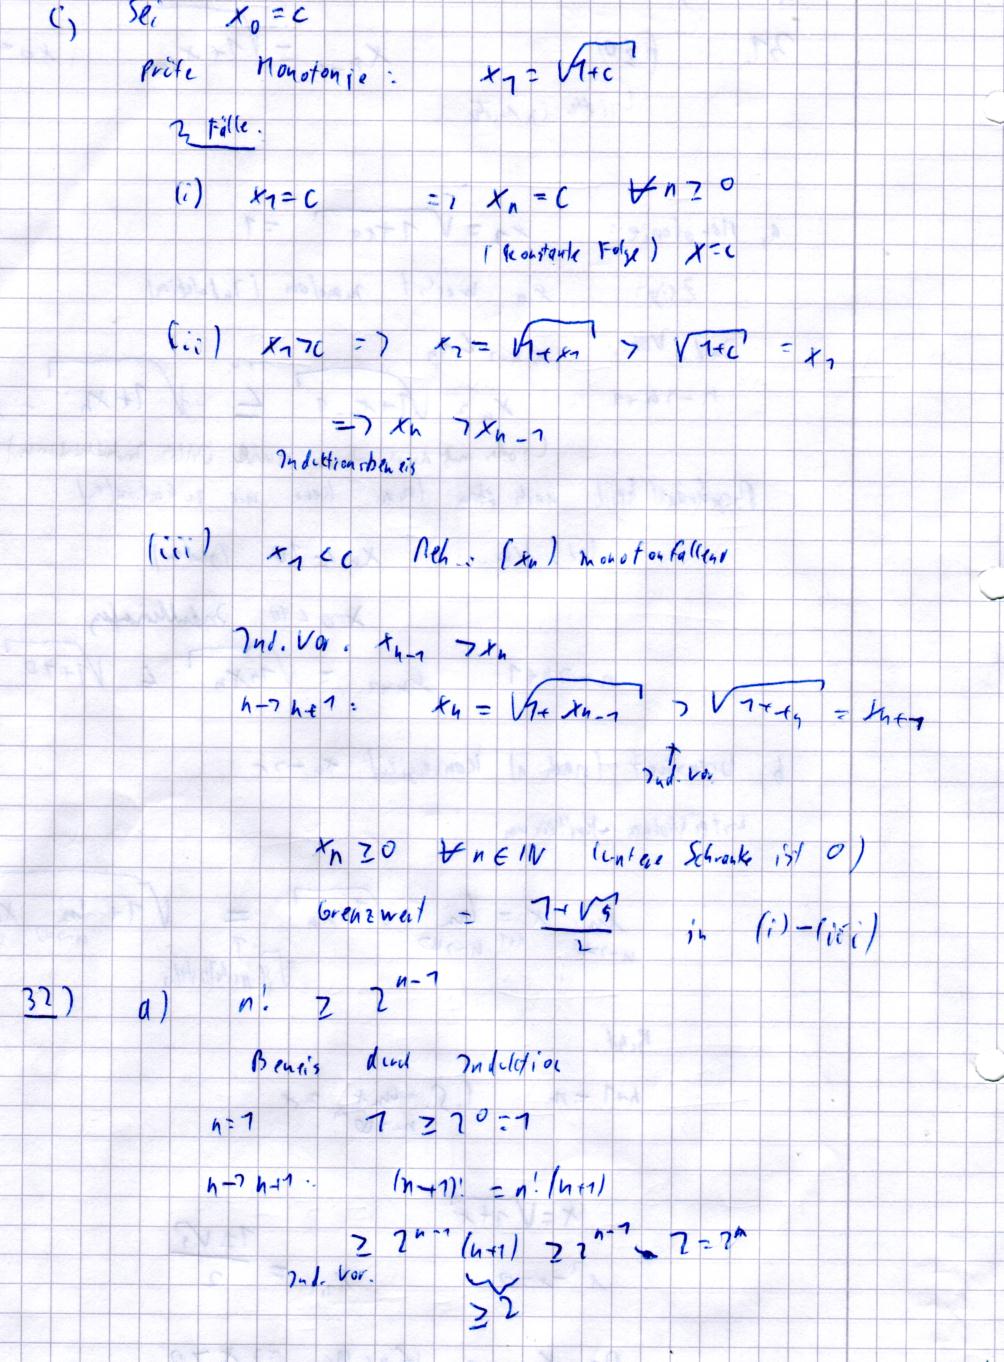 c) Sei x₀ = c
Prüfe Monotonie : x₁ = √(1+c)
3 Fälle.
(i) x₁ = c => xₙ = c ∀ n ≥ 0
(konstante Folge) x = c
(ii) x₁ > c => x₂ = √(1+x₁) > √(1+c) = x₁
=> xₙ > xₙ₋₁
Induktionsbeweis
(iii) x₁ < c Beh.: (xₙ) monoton fallend
Ind. Vor. xₙ₋₁ > xₙ
n -> n+1 : xₙ = √(1+xₙ₋₁) > √(1+xₙ) = xₙ₊₁
↑
Ind. Vor.
xₙ ≥ 0 ∀ n ∈ ℕ (untere Schranke ist 0)
Grenzwert = (1+√5)/2 in (i)-(iii)
32) a) n! ≥ 2ⁿ⁻¹
Beweis durch Induktion
n=1 1 ≥ 2⁰ = 1
n -> n+1 : (n+1)! = n! (n+1)
≥ 2ⁿ⁻¹ (n+1) ≥ 2ⁿ⁻¹ · 2 = 2ⁿ
Ind. Vor.
≥ 2